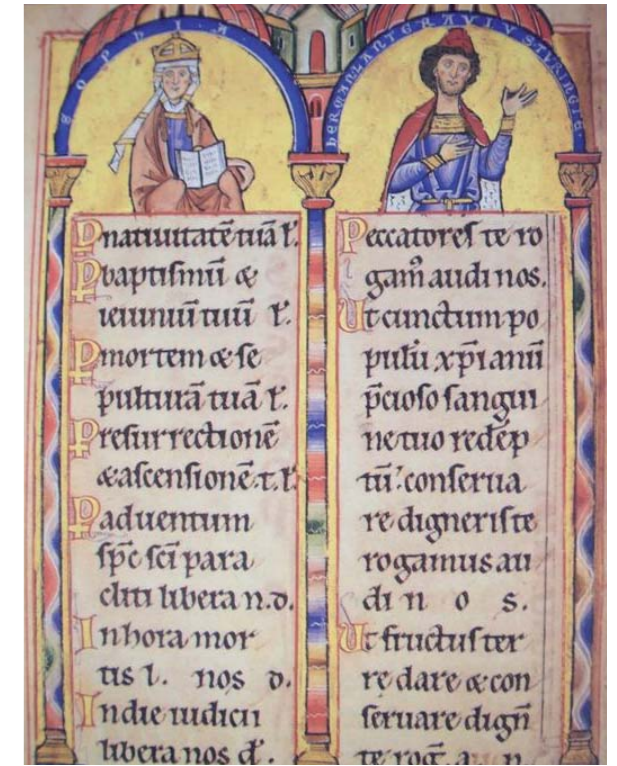 SOPHIA
hERMANLANTGRAVIVSTVRINGIE
Ꝑ natiuitatē tuā l'.
Ꝑ baptiſmū &
ieiuniū tuū l'.
Ꝑ mortem & ſe
pulturā tuā l'.
Ꝑ reſurrectionē
& aſcenſionē .t. l'.
Ꝑ aduentum
ſp̄c ſc̄i para
cliti libera n.d.
In hora mor
tis l. nos d.
In die iudicii
libera nos d'.
Peccatoreſ te ro
gam̄ audi nos.
Ut cunctum po
pulū xp̄ianū
p̄cioſo ſangui
ne tuo redēp
tū: conſerua
re digneriſ te
rogamus au
di nos.
Ut fructuſ ter
re dare & con
ſeruare dign̄
te rog̅. au n